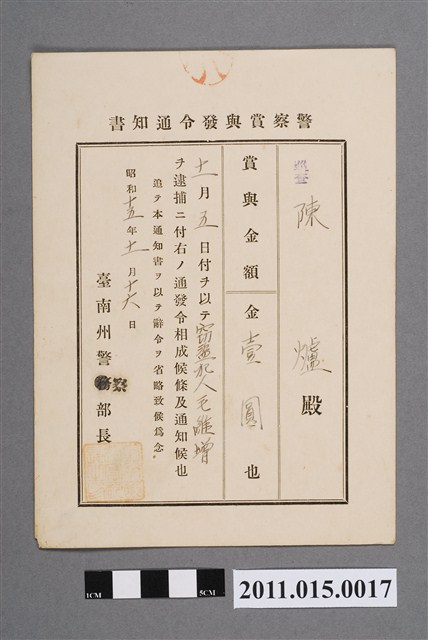 警察賞與發令通知書
巡査 陳 爐 殿
賞與金額 金壹圓也
十一月五日付ヲ以テ窃盜犯人毛雞增
ヲ逮捕ニ付右ノ通發令相成候條及通知候也
追テ本通知書ヲ以テ辭令ヲ省略致候爲念。
昭和十五年十一月十六日
臺南州警察部長
1CM
5CM
2011.015.0017